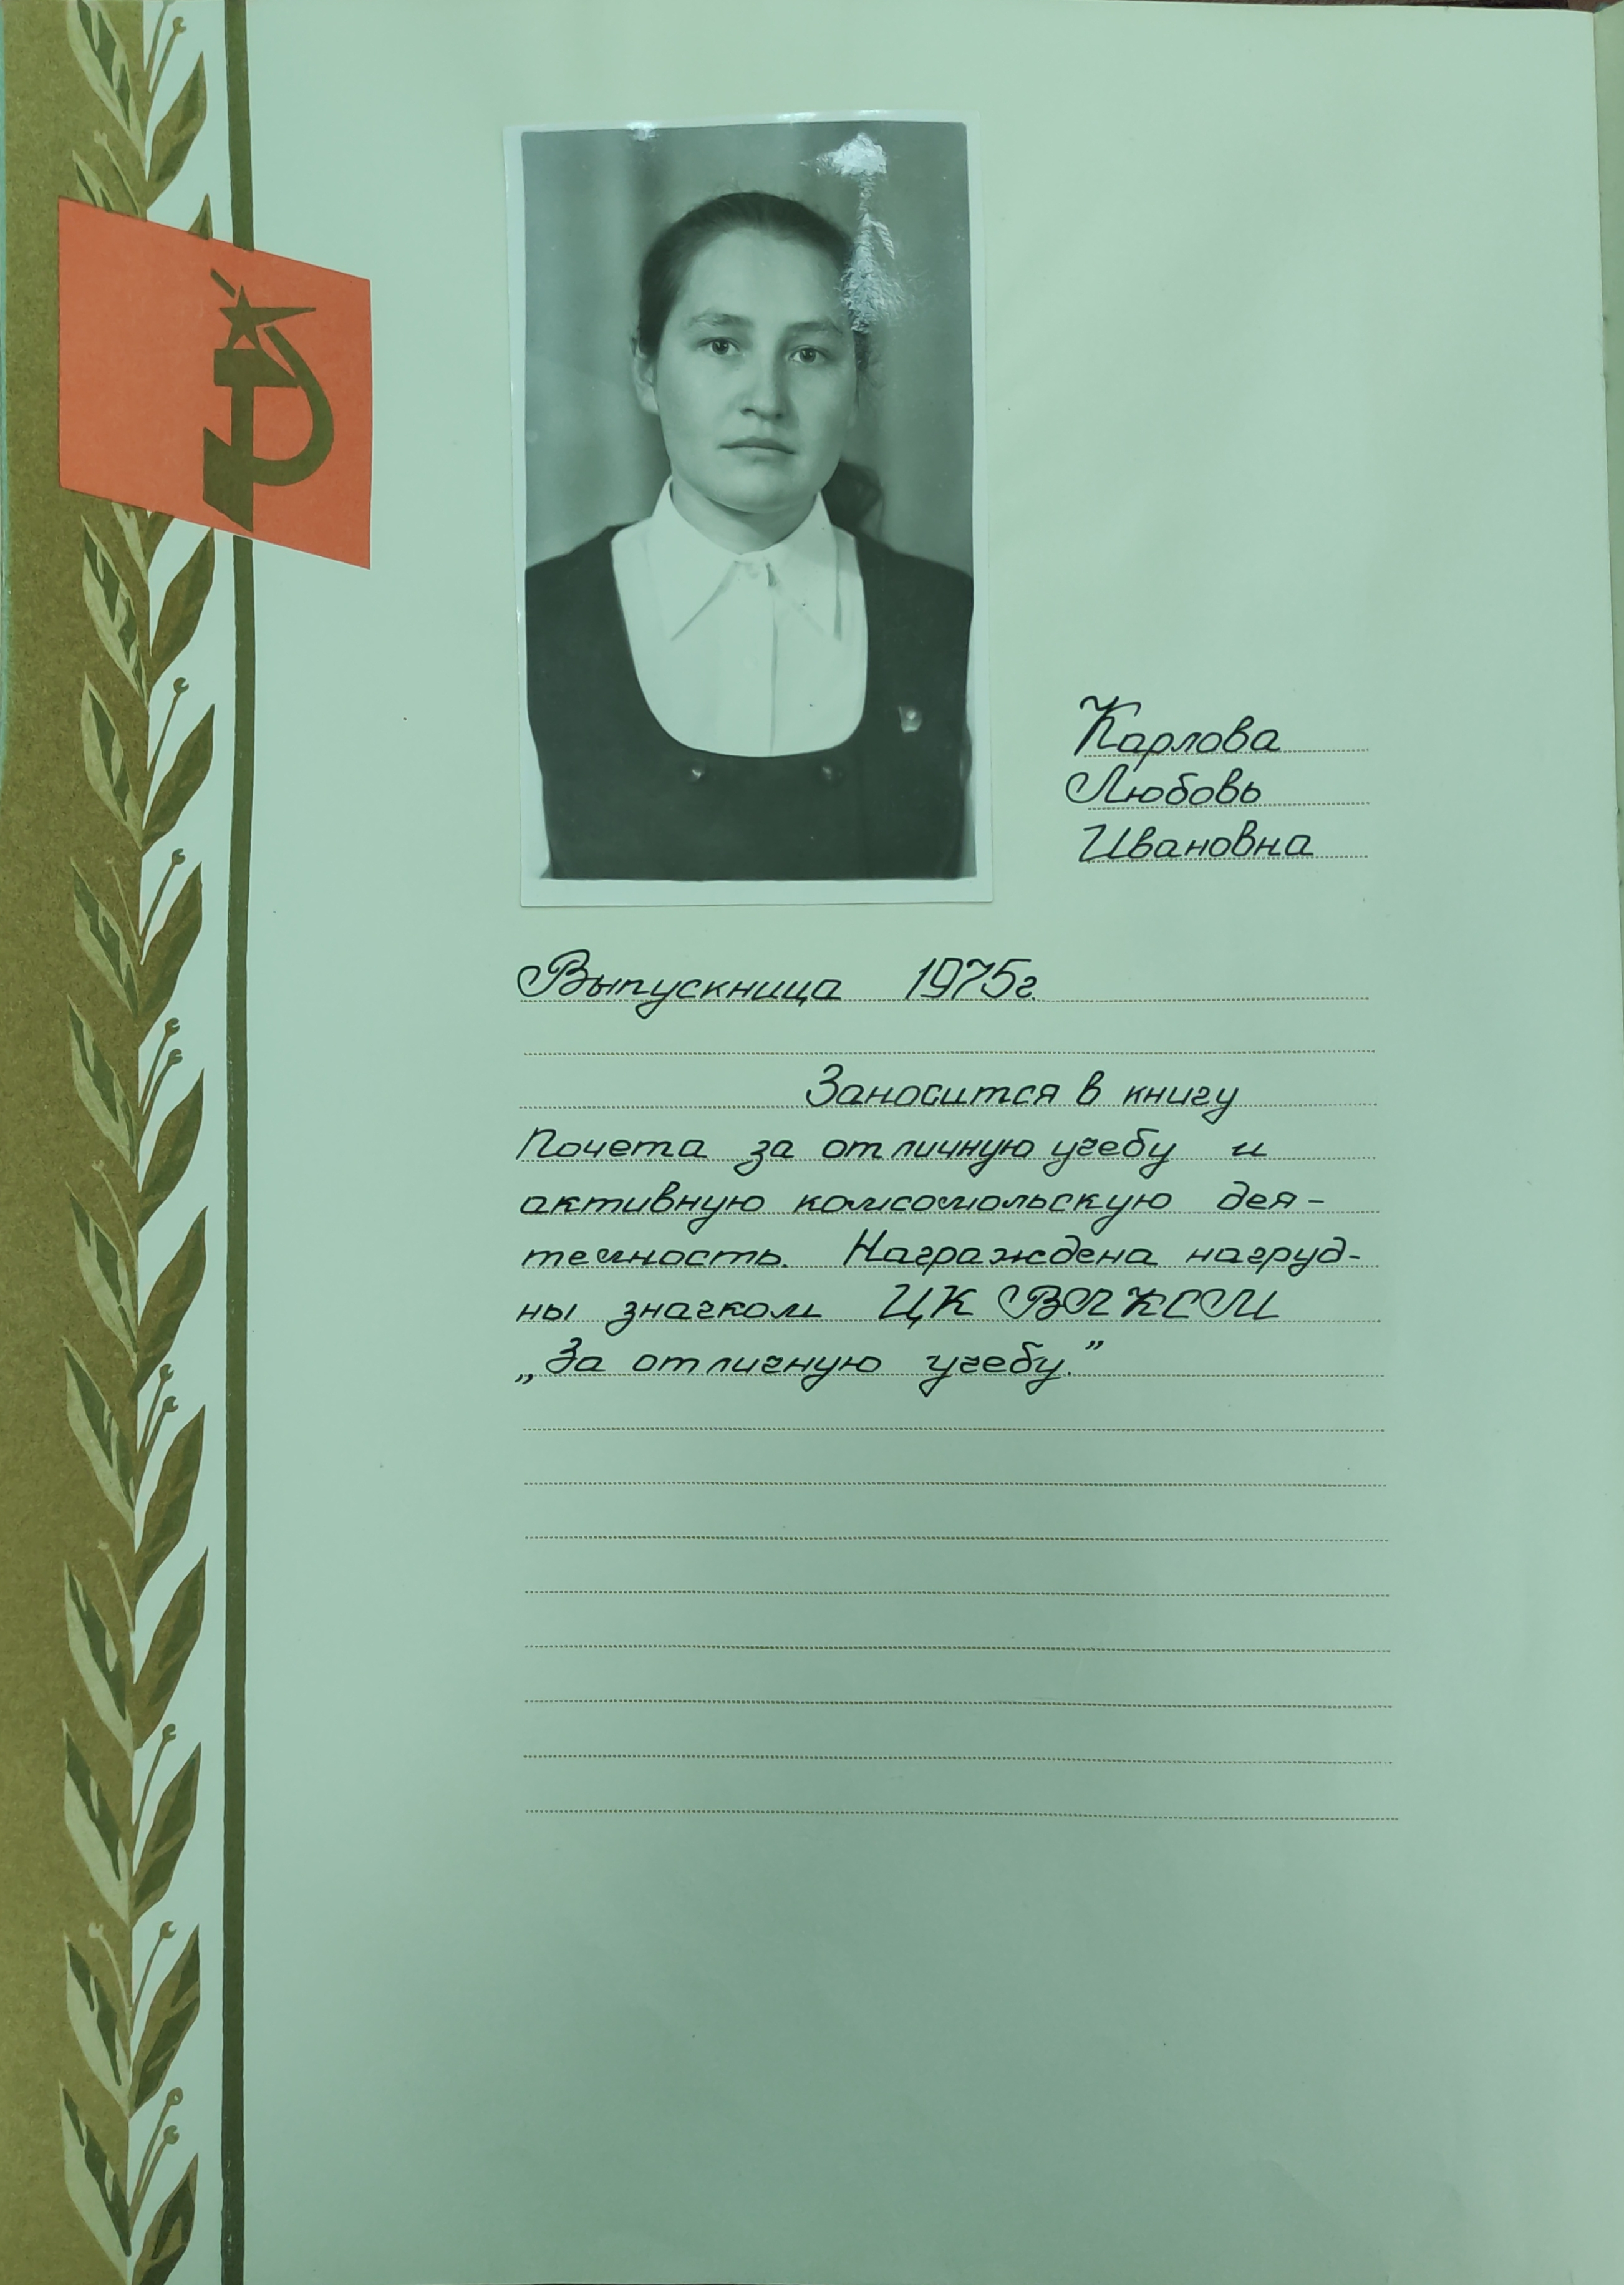 Карлова
Любовь
Ивановна
Выпускница 1975г.
Заносится в книгу
Почета за отличную учебу и
активную комсомольскую дея-
тельность. Награждена нагруд-
ны значком ЦК ВЛКСМ
„За отличную учебу.”